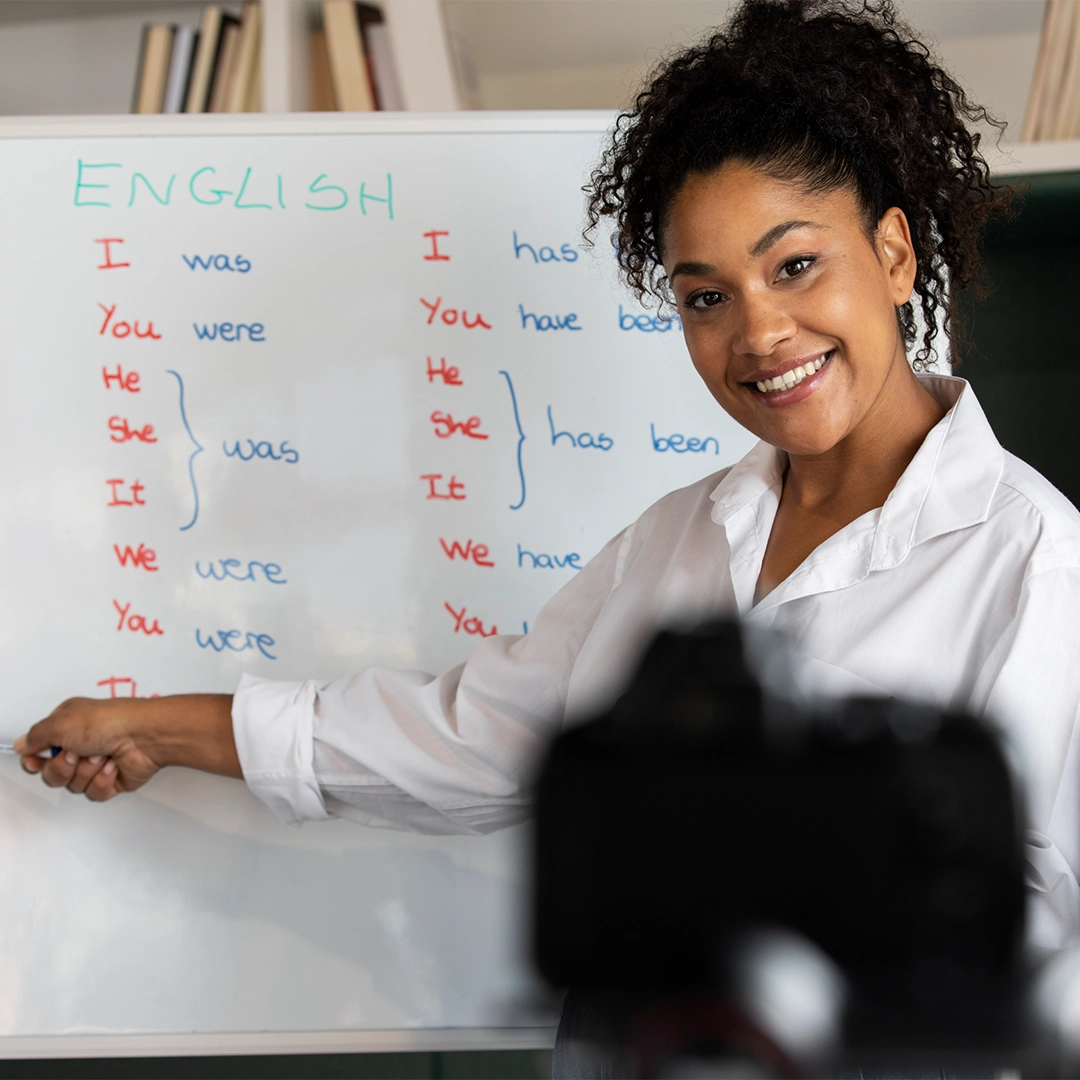 ENGLISH
I was
You were
He
She was
It
We were
You were
I has
You have been
He
She has been
It
We have
You